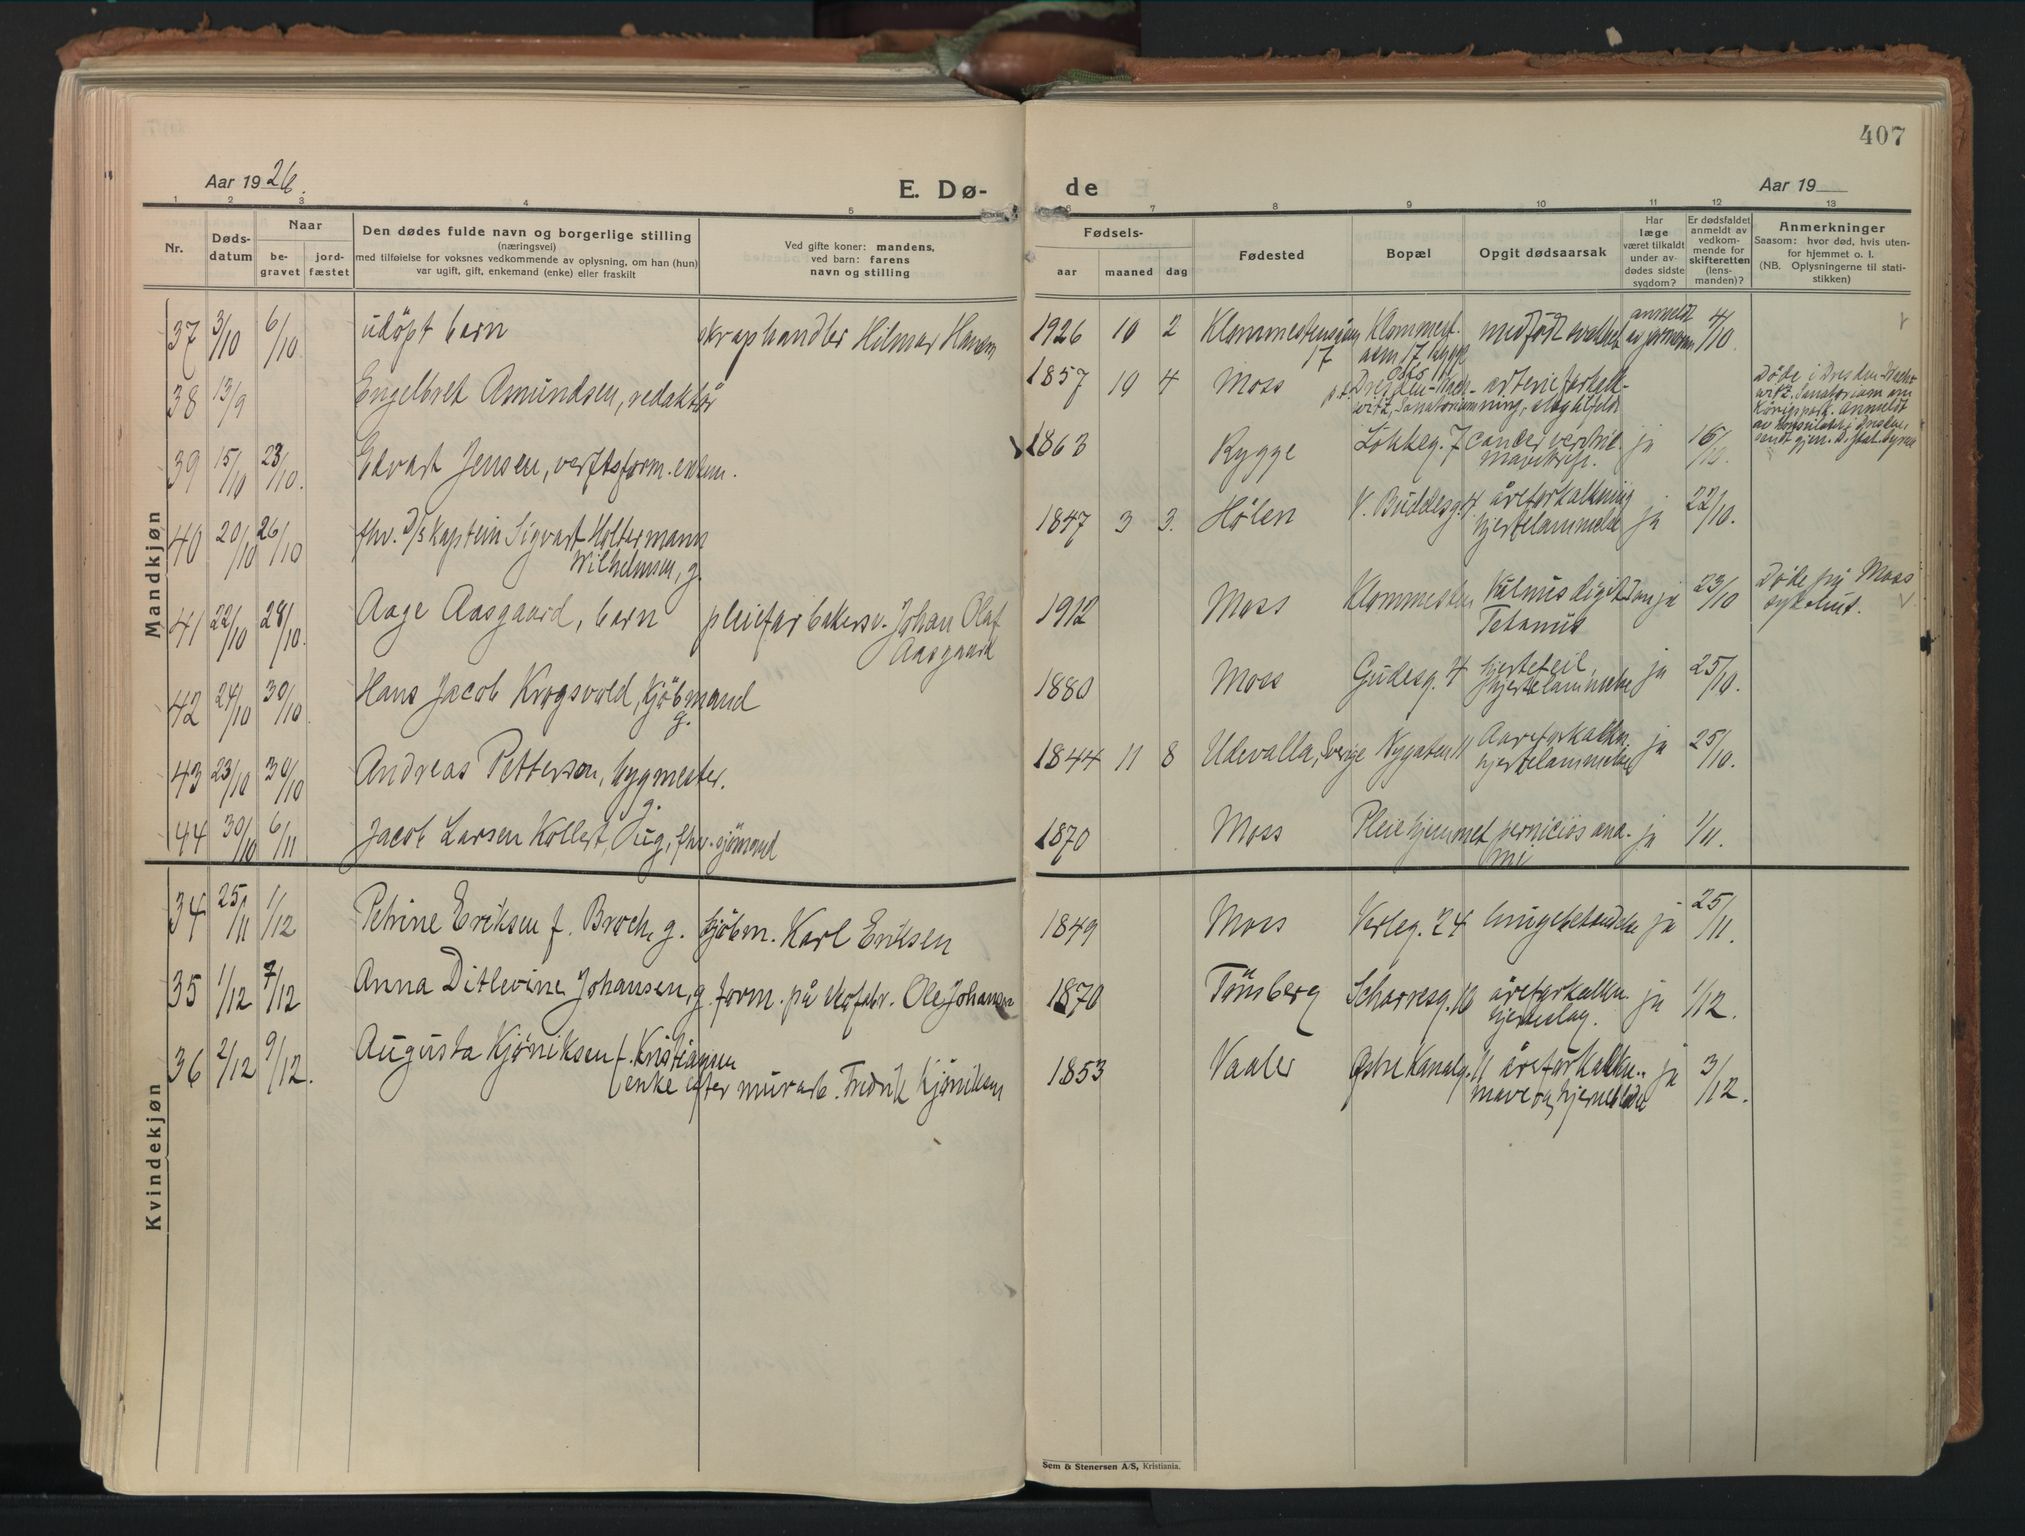 407
Aar 1926.
E. Dø-
de
Aar 19
1 2 3 4 5 6 7 8 9 10 11 12 13
Nr.
Døds-
datum
Naar
be-
gravet
jord-
fæstet
Den dødes fulde navn og borgerlige stilling
(næringsvei)
med tilføielse for voksnes vedkommende av oplysning, om han (hun)
var ugift, gift, enkemand (enke) eller fraskilt
Ved gifte koner: mandens,
ved barn: farens
navn og stilling
Fødsels-
aar maaned dag
Fødested
Bopæl
Opgit dødsaarsak
Har
læge
været tilkaldt
under av-
dødes sidste
sygdom?
Er dødsfaldet
anmeldt av
vedkom-
mende for
skifteretten
(lens-
manden)?
Anmerkninger
Saasom: hvor død, hvis uten-
for hjemmet o. l.
(NB. Oplysningerne til stati-
stikken)
Mandkjøn
37 3/10 6/10 udöpt barn skraphandler Hilmar Hansen 1926 10 2 Klommestensveien 17 medfødt svakhet anmeldt av jormoren 4/10.
38 13/9 Engelbret Amundsen, redaktör 1857 10 4 Moss Oslo Dresden arterieforkalk-
ning, slagtilfelde
Döde i Dresden
Sanatorium am
Königspark. Anmeldt
av Konsulatet i Dresden,
39 15/10 23/10. Edvart Jensen, verftsform. enkem. 1863 Rygge Lökkeg. 7 cancer ventric.
ja 16/10
40 20/10 26/10 fhv. D/s Kaptein Sigvart Holtermann
Wilhelmsen, g. 1847 3 3. Hølen V. Buddesg. 4. åreforkalkning
hjertelammelse ja 22/10.
41 22/10 28/10. Aage Aasgaard, barn pleiefar bakersv. Johan Olaf
Aasgaard 1912 Moss Klommesten
Tetanus ja 23/10 Döde på Moss
sykehus.
42 24/10 30/10 Hans Jacob Krogsvold, kjöbmand
g. 1880 Moss Gudesg. 4 hjertefeil,
hjertelammelse ja 25/10.
43 23/10 30/10 Andreas Petterson, bygmester.
g. 1844 11 8 Udevalla, Sverige Nygaten 11 Aareforkalkn.
hjertelammelse ja 25/10.
44 30/10 6/11 Jacob Larsen Kollert, ug, fhv. sjömand 1870 Moss Pleiehjemmet perniciøs anæ-
mi ja 1/11.
Kvindekjøn
34 25/11 1/12 Petrine Eriksen f. Brock, g. kjöbm. Karl Eriksen 1849 Moss Verleg. 24 lungebetændelse ja 25/11.
35 1/12 7/12 Anna Ditlevine Johansen, g. form. på Ole Johansen 1870 Tönsberg 10 åreforkalkn.
hjerneslag. ja 1/12.
36 2/12 9/12. Augusta Kjøniksen f. Kristiansen
enke efter murarb. Fredrik Kjøniksen 1853 Vaaler Østre Kanalg. 11 åreforkalkn.
mave og ja 3/12.
Sem & Stenersen A/S, Kristiania.